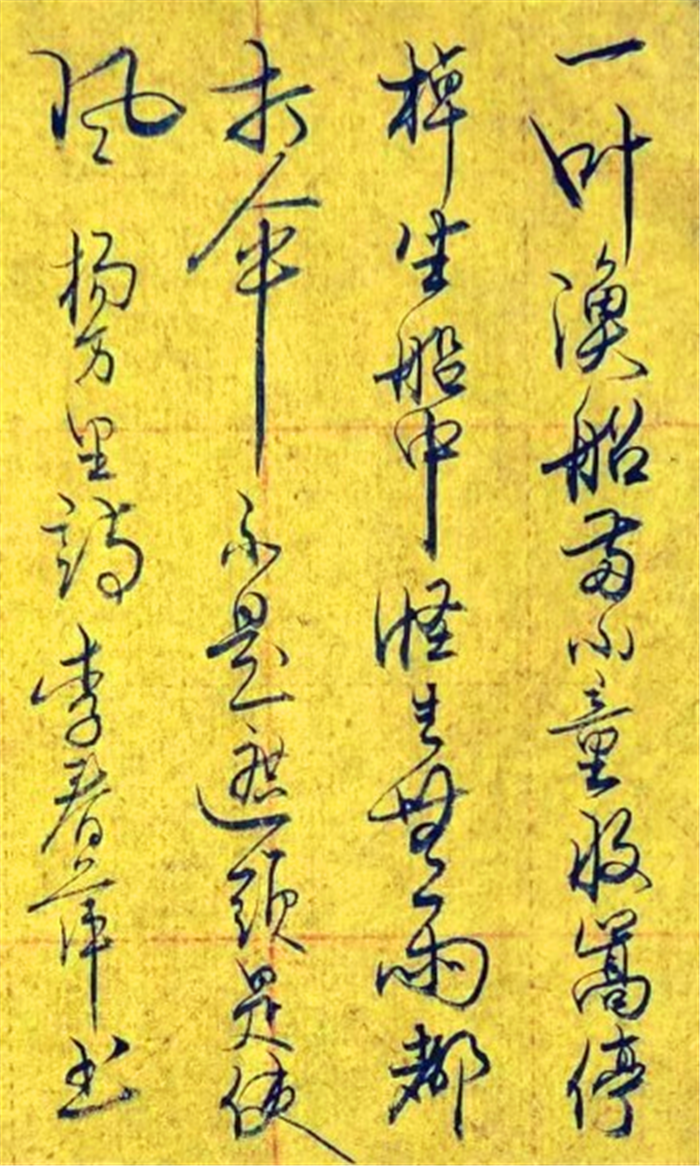 一叶渔船两小童收篙停
棹坐船中怪生無雨都
打伞不是遮頭是使
风 杨万里詩 李春萍书